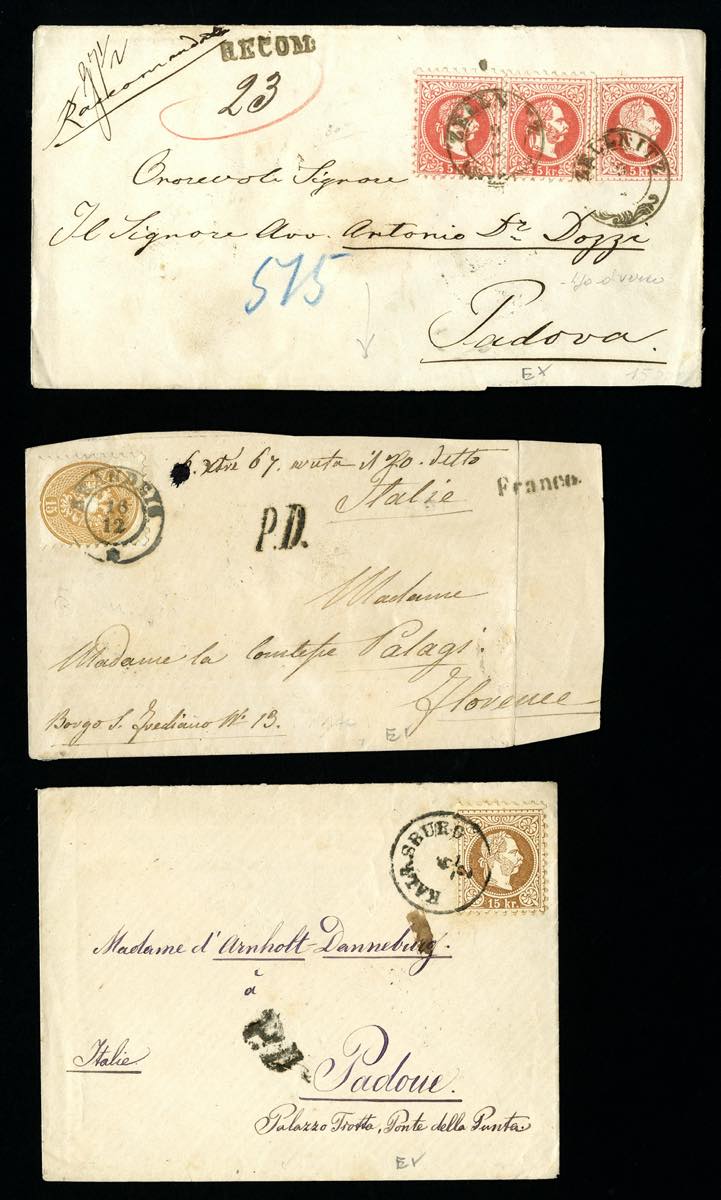 Raccomandata
RECOM.
23
5 kr.
5 kr.
5 kr.
Onorevole Signore
Il Signore Avv. Antonio Dr. Dozzi
575
Padova.
EX
15
16
12
67
Italie
Franco.
P.D.
Madame
Madame la Comtesse Palagi
Florence
Borgo S. Frediano No 13.
KALKSBURG
15 kr.
Madame d'Arnholt-Danneburg.
à
P.D.
Italie
Padoue.
Palazzo Trotta, Ponte della Punta.